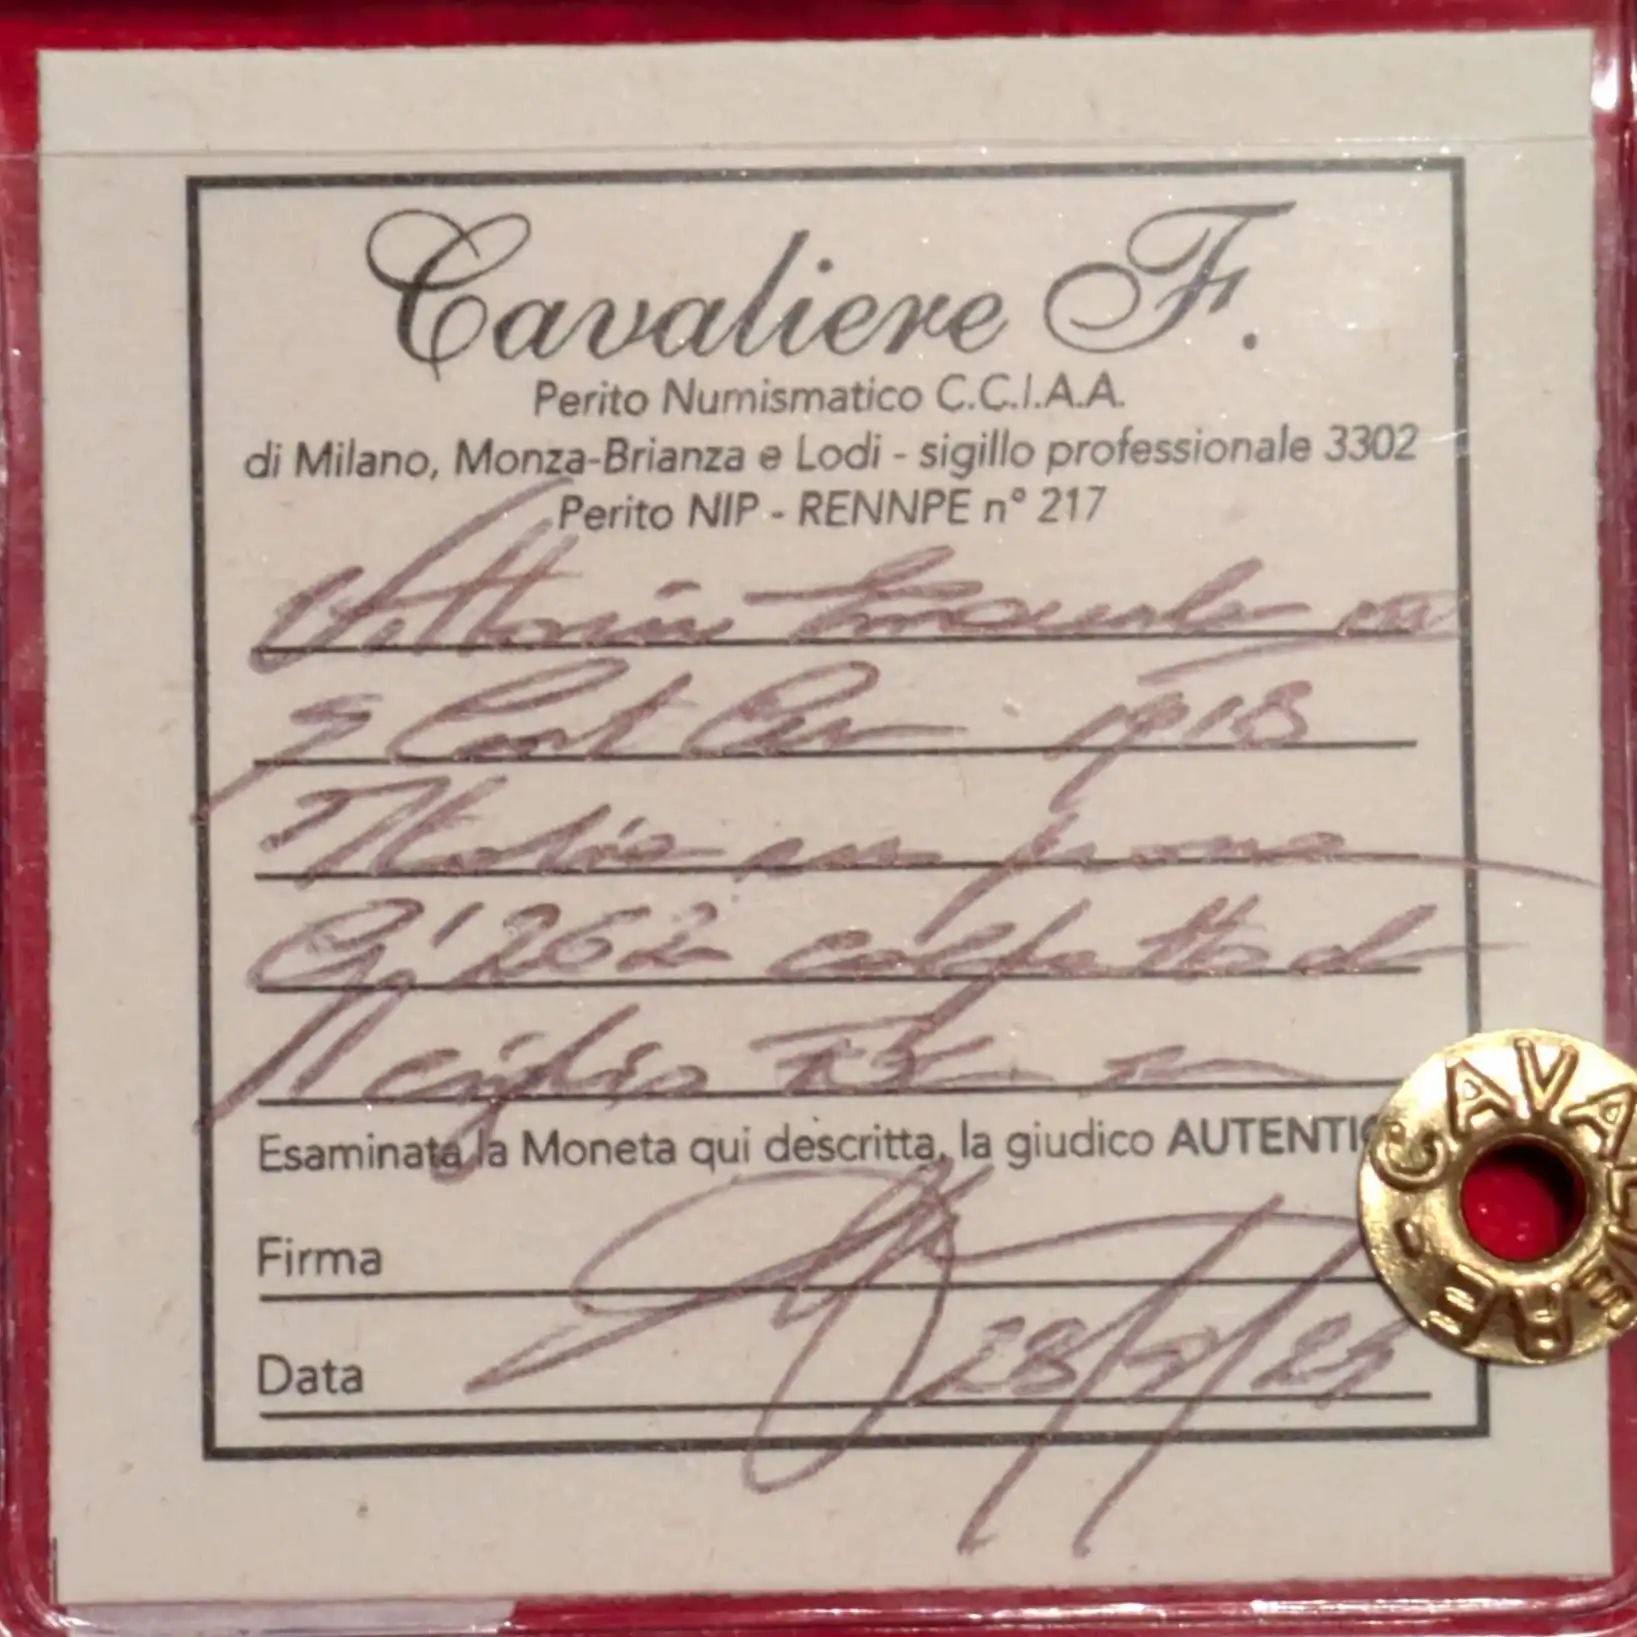 Cavaliere F.
Perito Numismatico C.C.I.A.A.
di Milano, Monza-Brianza e Lodi - sigillo professionale 3302
Perito NIP - RENNPE n° 217
Vittorio Emanuele III
5 Cent 1918
Italia su prora
G. 262
Ciglio
Esaminata la Moneta qui descritta, la giudico AUTENTIC
Firma
Data 28/ /25
CAVALIERE